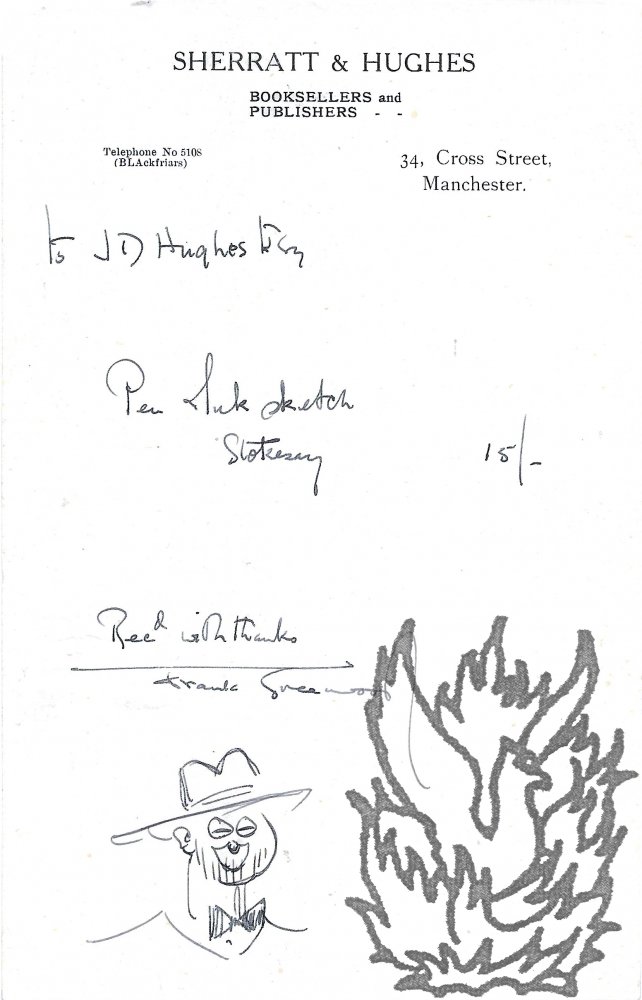 SHERRATT & HUGHES
BOOKSELLERS and
PUBLISHERS - -
Telephone No 5108
(BLAckfriars)
34, Cross Street,
Manchester.
to J D Hughes Esq
Pen & Ink sketch
Stokesay
15/-
Recd with thanks
Frank Greenwood